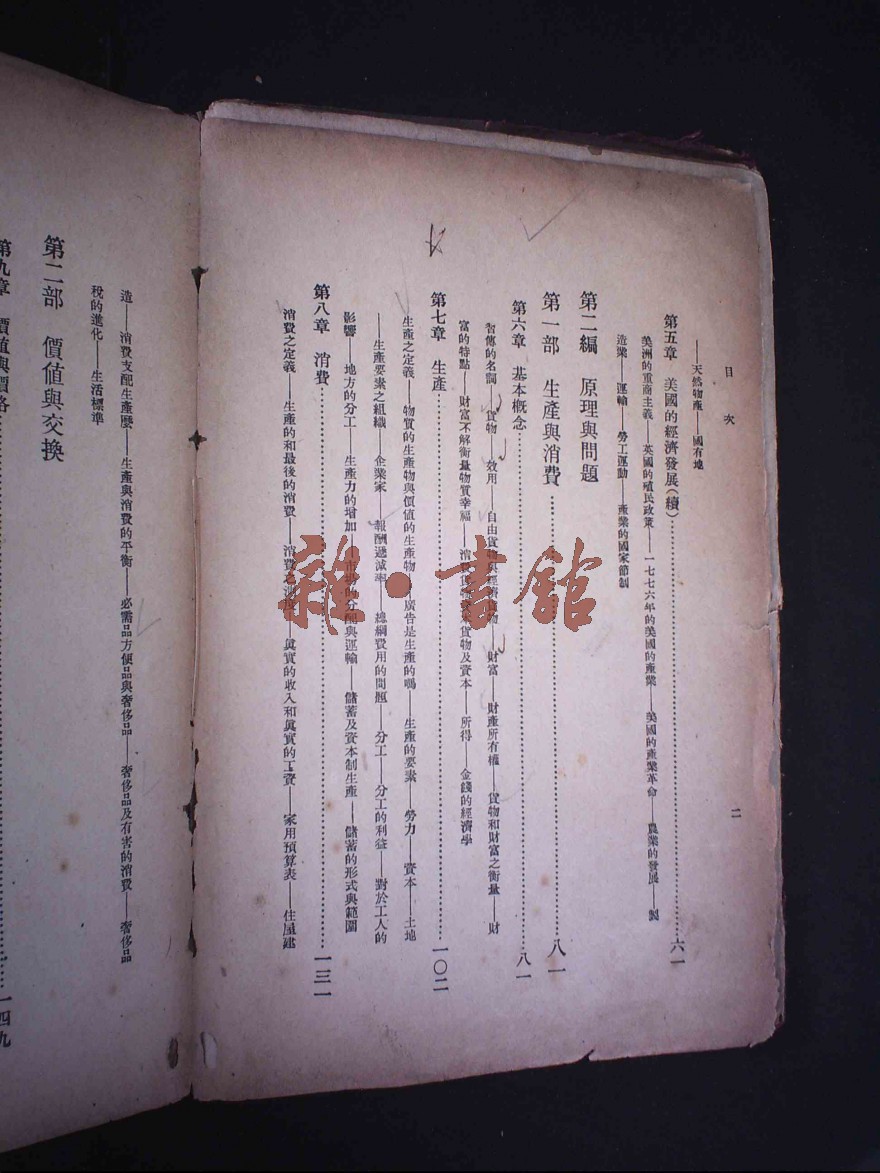 目次
二
——天然物產——國有地
第五章 美國的經濟發展(續)……六一
美洲的重商主義——英國的殖民政策——一七七六年的美國的產業——美國的產業革命——農業的發展——製
造業——運輸——勞工運動——產業的國家節制
第二編 原理與問題
第一部 生產與消費……八一
第六章 基本概念……八一
習傳的名詞——貨物——效用——自由貨物與經濟貨物——財富——財產所有權——貨物和財富之衡量——財
富的特點——財富不解衡量物質幸福——消費貨物 貨物及資本——所得——金錢的經濟學
第七章 生產……一〇二
生產之定義——物質的生產物與價值的生產物——廣告是生產的嗎——生產的要素——勞力——資本——土地
——生產要素之組織——企業家——報酬遞減率——總綱費用的問題——分工——分工的利益——對於工人的
影響——地方的分工——生產力的增加——市場的分配與運輸——儲蓄及資本制生產——儲蓄的形式與範圍
第八章 消費……一三一
消費之定義——生產的和最後的消費——消費之測度——眞實的收入和眞實的工資——家用預算表——住屋建
造——消費支配生產麼——生產與消費的平衡——必需品方便品與奢侈品——奢侈品及有害的消費——奢侈品
稅的進化——生活標準
第二部 價值與交換
第九章 價值與價格……一四九
雜·書館